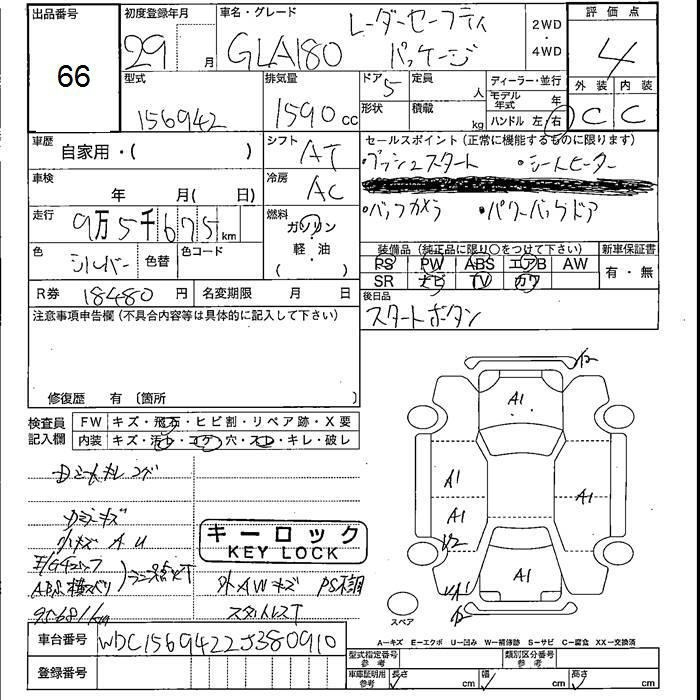 出品番号
66
初度登録年月
29 月
車名・グレード
GLA180 レーダーセーフティ パッケージ
2WD
・
4WD
評価点
4
外装 内装
C C
型式
156942
排気量
1590 cc
ドア
5
形状
定員 人
積載 kg
ディーラー・並行
モデル年式 年
ハンドル 左/右
車歴
自家用・( )
シフト
AT
車検
年 月( 日)
冷房
AC
走行
9万5千675 km
燃料
ガソリン
軽・油
色
シルバー
色替
色コード
R券 18480 円
名変期限 月 日
セールスポイント (正常に機能するものに限ります)
・プッシュスタート ・シートヒーター
・バックカメラ ・パワーバックドア
装備品 (純正品に限り○をつけて下さい)
PS PW ABS エアB AW
SR ナビ TV カワ
新車保証書
有・無
後日品
スタートボタン
注意事項申告欄(不具合内容等は具体的に記入して下さい)
修復歴 有 〔箇所 〕
検査員記入欄
FW キズ・飛石・ヒビ割・リペア跡・X要
内装 キズ・汚レ・コゲ・穴・スレ・キレ・破レ
小キズ A U
ABS 横スベリ
ランプ点灯
95681km
キーロック
KEY LOCK
外AWキズ PS不調
スタットレスT
A1
A1
A1
A1
A1
スペア
A-キズ E-エクボ U-凹み W-補修跡 S-サビ C-腐食 XX-交換済
車台番号 WDC1569422J380910
登録番号
型式指定番号 参考
類別区分番号 参考
車庫証明用 参考
長さ cm 幅 cm 高さ cm